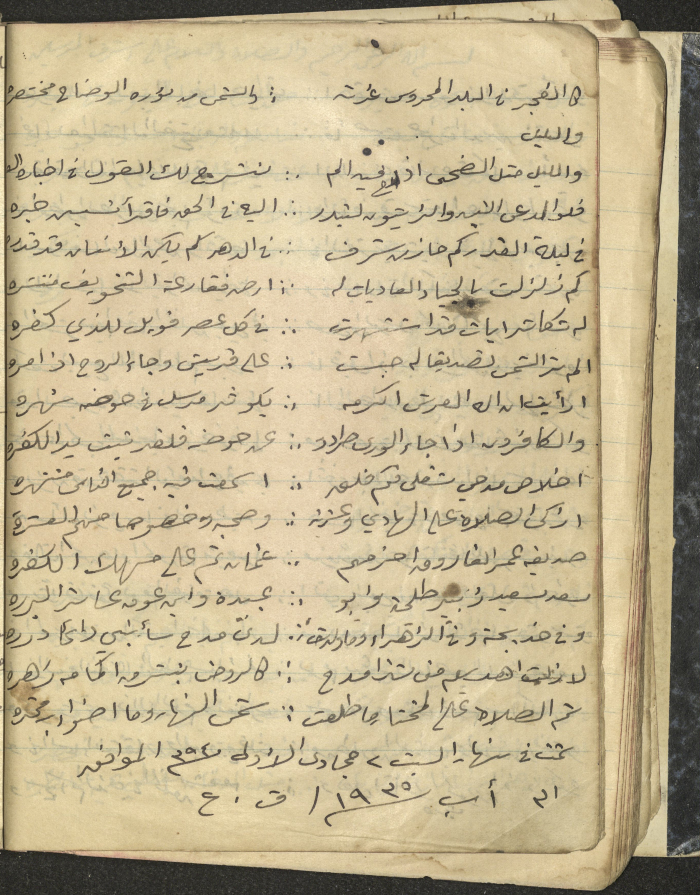 كالفجر في البلد المحروس غرته ∴ والشمس من نوره الوضاح مختصره
والليل
والليل مثل الضحى اذ فيه الم ∴ نشرح لك القول في اخباره
فلو لمدعى التين والزيتون لبتدر ∴ اليه في الحق فاقرأ تستبين خبره
في ليلة القدر كم حاز من شرف ∴ في الدهر لم يكن الانسان قد قدره
كم زلزلت بالجياد العاديات له ∴ ارض بقارعة التخويف منتشره
له تكاثر ايات قد اشتهرت ∴ في كل عصر فويل للذي كفره
الم تر الشمس تصديقا له حبست ∴ على قريش وجاء الروح اذ امره
ارأيت ان اله العرش اكرمه ∴ بكوثر مرسل في حوضه نهره
والكافرون اذا جاء الورى طردو ∴ عن حوضه فلقد تبت يد الكفره
اخلاص مدحي شغلي فكم فلق ∴ اسمعت فيه جميع الناس مفتخره
ازكى الصلاة على الهادي وعترته ∴ وصحبه وخصوصا منهم العشرة
صديقه عمر الفاروق احزمهم ∴ عثمان ثم علي مهلك الكفره
سعد سعيد زبير طلحة وابو ∴ عبيدة وابن عوف عاشر البرره
وفي خديجة وفي الزهراء وما ولدت ∴ لدي مدح سأبني دائما درره
لا زلت اهدي من شذا مدح ∴ كالروض ينشر من اكمامه زهره
ثم الصلاة على المختار ما طلعت ∴ شمس النهار وما اضواء بحره
تمت في نهار السبت ٢ جمادى الاولى ٣٩٤ الموافق
٣١ أب ١٩٣٥ / ق . ع